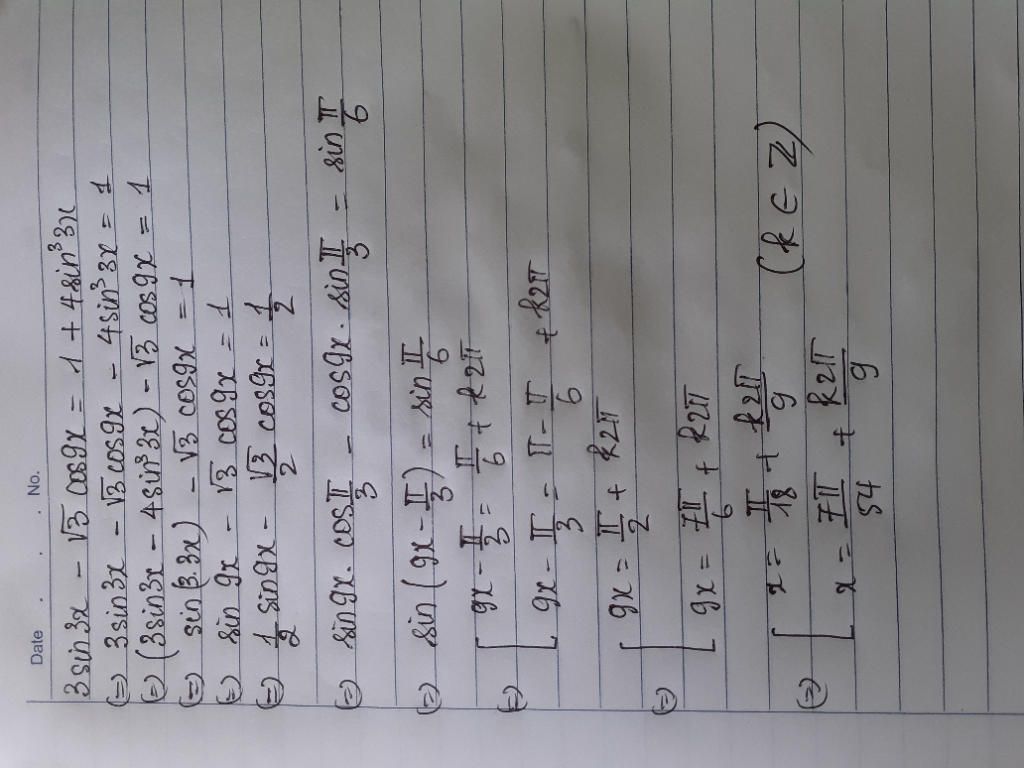 Date . . . No.
3 sin 3x - √3 cos9x = 1 + 4sin³3x
(=) 3 sin 3x - √3 cos9x - 4sin³3x = 1
(=) (3sin3x - 4sin³3x) - √3 cos9x = 1
(=) sin(3.3x) - √3 cos9x = 1
(=) sin 9x - √3 cos9x = 1
(=) 1/2 sin9x - √3/2 cos9x = 1/2
(=) sin9x. cos π/3 - cos9x. sin π/3 = sin π/6
(=) sin(9x - π/3) = sin π/6
(=) [ 9x - π/3 = π/6 + k2π
9x - π/3 = π - π/6 + k2π
(=) [ 9x = π/2 + k2π
9x = 7π/6 + k2π
(=) [ x = π/18 + k2π/9 (k ∈ Z)
x = 7π/54 + k2π/9